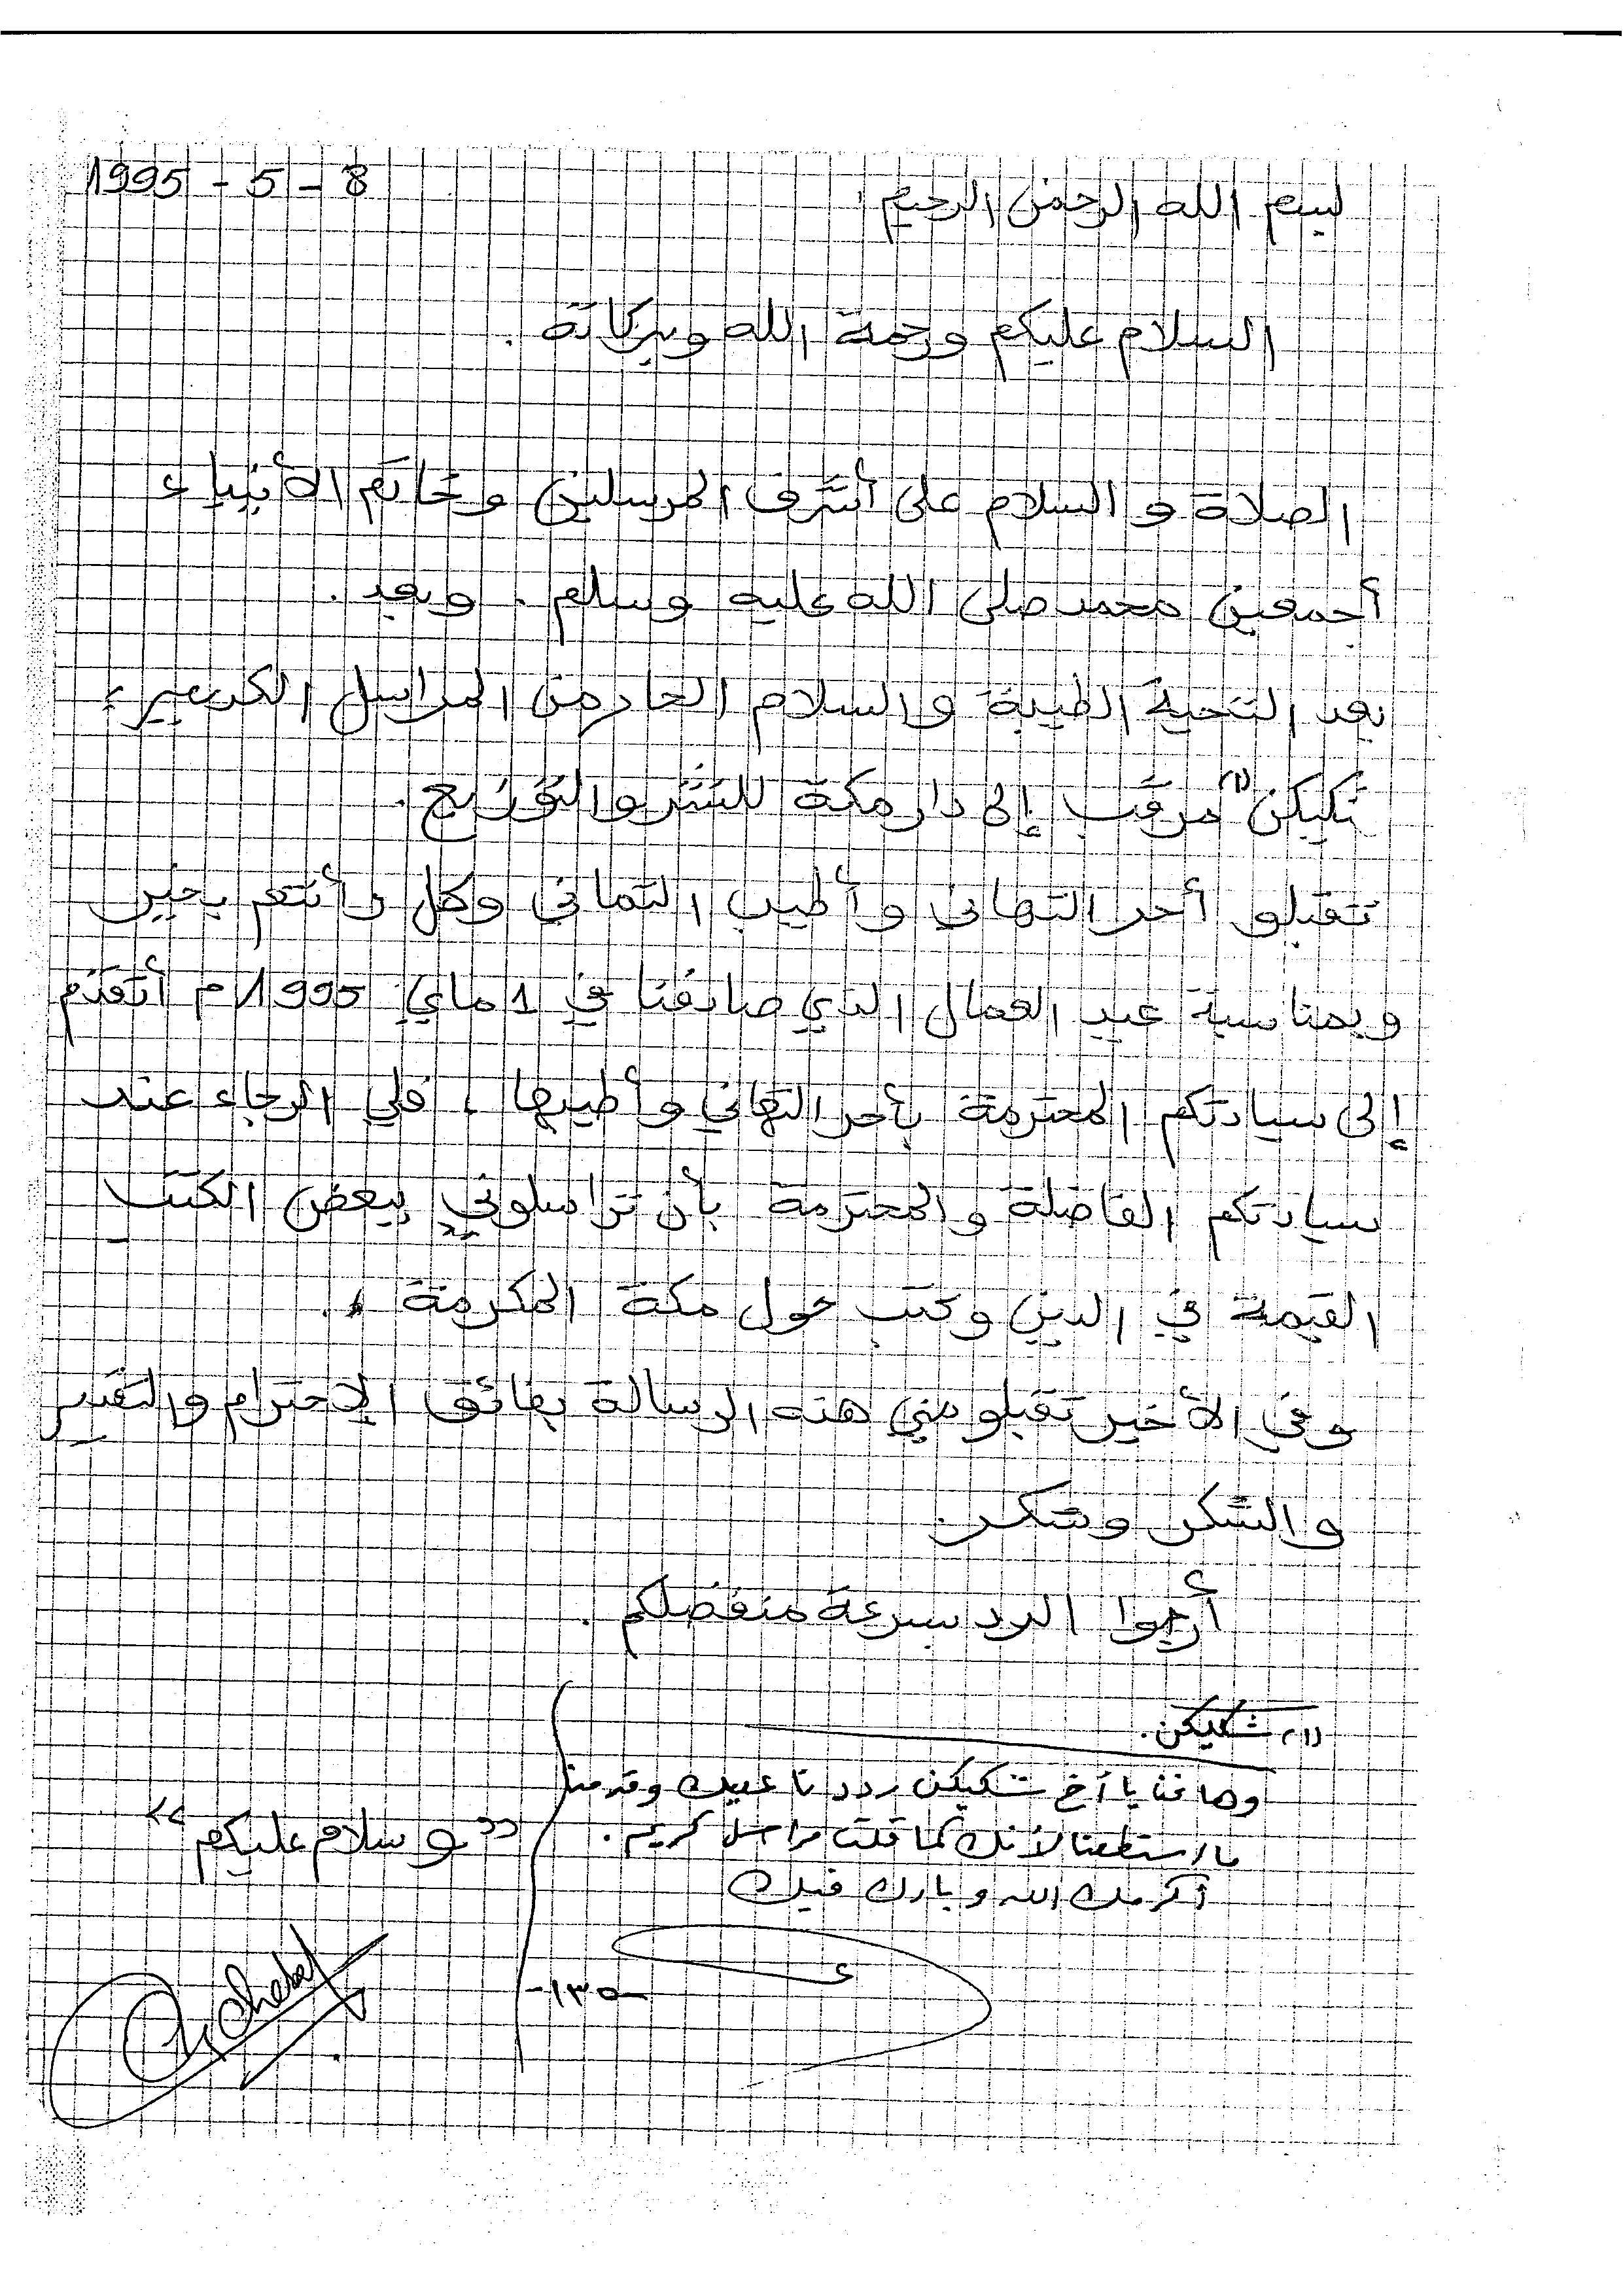 8 - 5 - 1995
بسم الله الرحمن الرحيم
السلام عليكم ورحمة الله وبركاته .
الصلاة و السلام على أشرف المرسلين وخاتم الأنبياء
أجمعين محمد صلى الله عليه وسلم . وبعد .
بعد التحية الطيبة والسلام الحار من المراسل الكريم ،
شكيكن (1) مرقب إلى دار مكة للنشر والتوزيع .
تتقبلو أحر التهاني وأطيب التماني وكل وأنتم بخير
وبمناسبة عيد العمال الذي صادفنا في 1 ماي 1995م أتقدم
إلى سيادتكم المحترمة بأحر التهاني وأطيبها ، فلي الرجاء عند
سيادتكم الفاضلة والمحترمة بأن تراسلوني ببعض الكتب
القيمة في الدين وكتب حول مكة المكرمة .
وفي الأخير تقبلو مني هذه الرسالة بفائق الإحترام والتقدير
والشكر وشكر.
أرجوا الرد بسرعة منفضلكم .
(1) شكيكن.
وها نحن يا أخ شكيكن رددنا عليك وقدمنا
ما استطعنا لأنك كما قلت مراسل كريم .
أكرمك الله وبارك فيك
" و سلام عليكم "
-١٣٥-